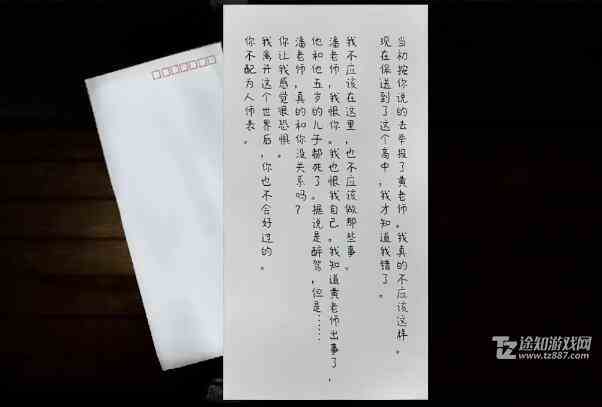 当初按你说的去举报了黄老师。我真的不应该这样。
现在保送到了这个高中，我才知道我错了。
我不应该在这里，也不应该做那些事。
潘老师，我恨你。我也恨我自己。我知道黄老师出事了，
他和他五岁的儿子都死了。据说是醉驾，但是……
潘老师，真的和你没关系吗？
你让我感觉很恐惧。
我离开这个世界后，你也不会好过的。
你不配为人师表。
TZ 途知游戏网
www.tz887.com